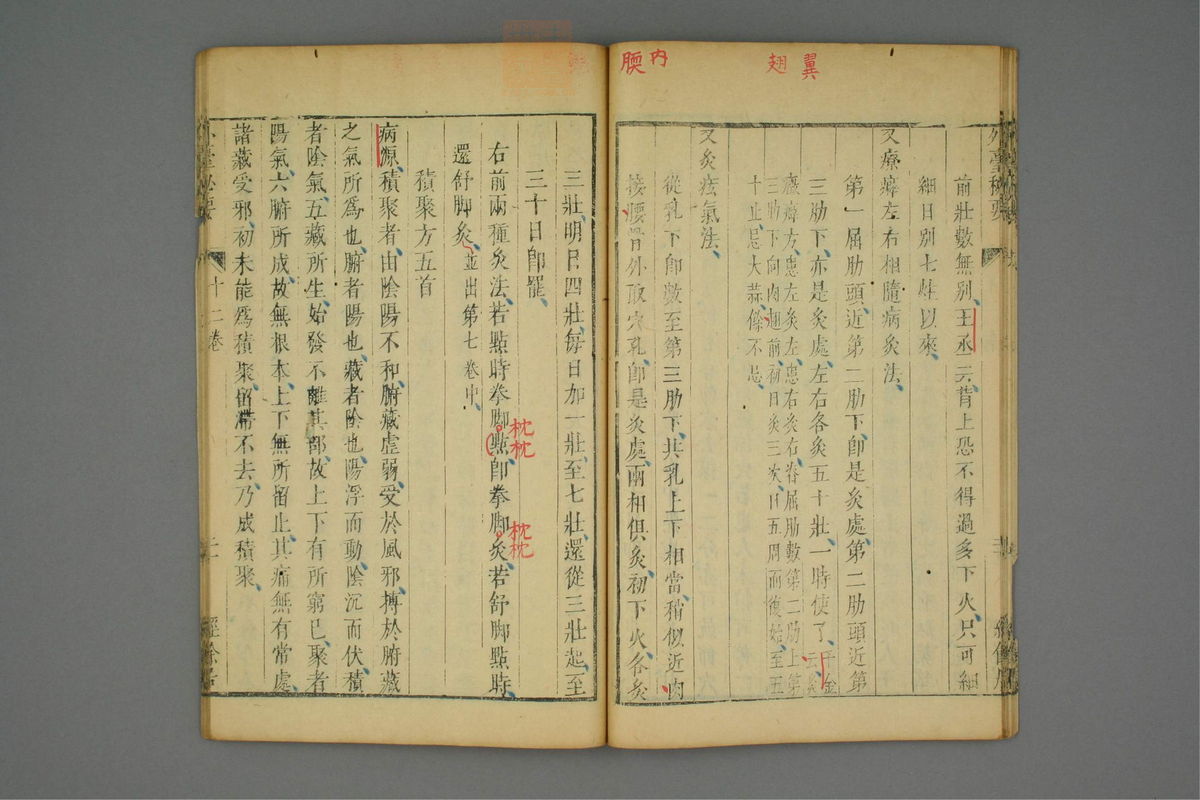 內腰
翼翅
外臺秘要
前壯數無別、王丞云、背上恐不得過多下火、只可細
細日別七炷以來
又療癖左右相隨病灸法、
第一屈肋頭近第二肋下、即是灸處、第二肋頭近第
三肋下亦是灸處、左右各灸五十壯、一時使了、千金云、灸
癥癖方、患左灸左、患右灸右、脊屈肋數第二肋上第
三肋下向肉翅前、初日灸三次、日五周而復始、至五
十止、忌大蒜、餘不忌、
又灸痃氣法、
從乳下即數至第三肋下、共乳上下相當、稍似近肉
接腰骨外取穴孔、即是灸處、兩相俱灸、初下火、各灸
三壯、明日四壯、每日加一壯、至七壯、還從三壯起、至
三十日即罷、
右前兩種灸法、若點時拳脚點、即拳脚灸、若舒脚點時、
枕枕
枕枕
還舒脚灸、並出第七卷中、
積聚方五首
病源、積聚者、由陰陽不和、腑藏虛弱、受於風邪、搏於腑藏
之氣所爲也、腑者陽也、藏者陰也、陽浮而動、陰沉而伏、積
者陰氣、五藏所生、始發不離其部、故上下有所窮已、聚者
陽氣、六腑所成、故無根本、上下無所留止、其痛無有常處、
諸藏受邪、初未能爲積聚、留滯不去、乃成積聚、
外臺秘要
十二卷
二十
經餘居